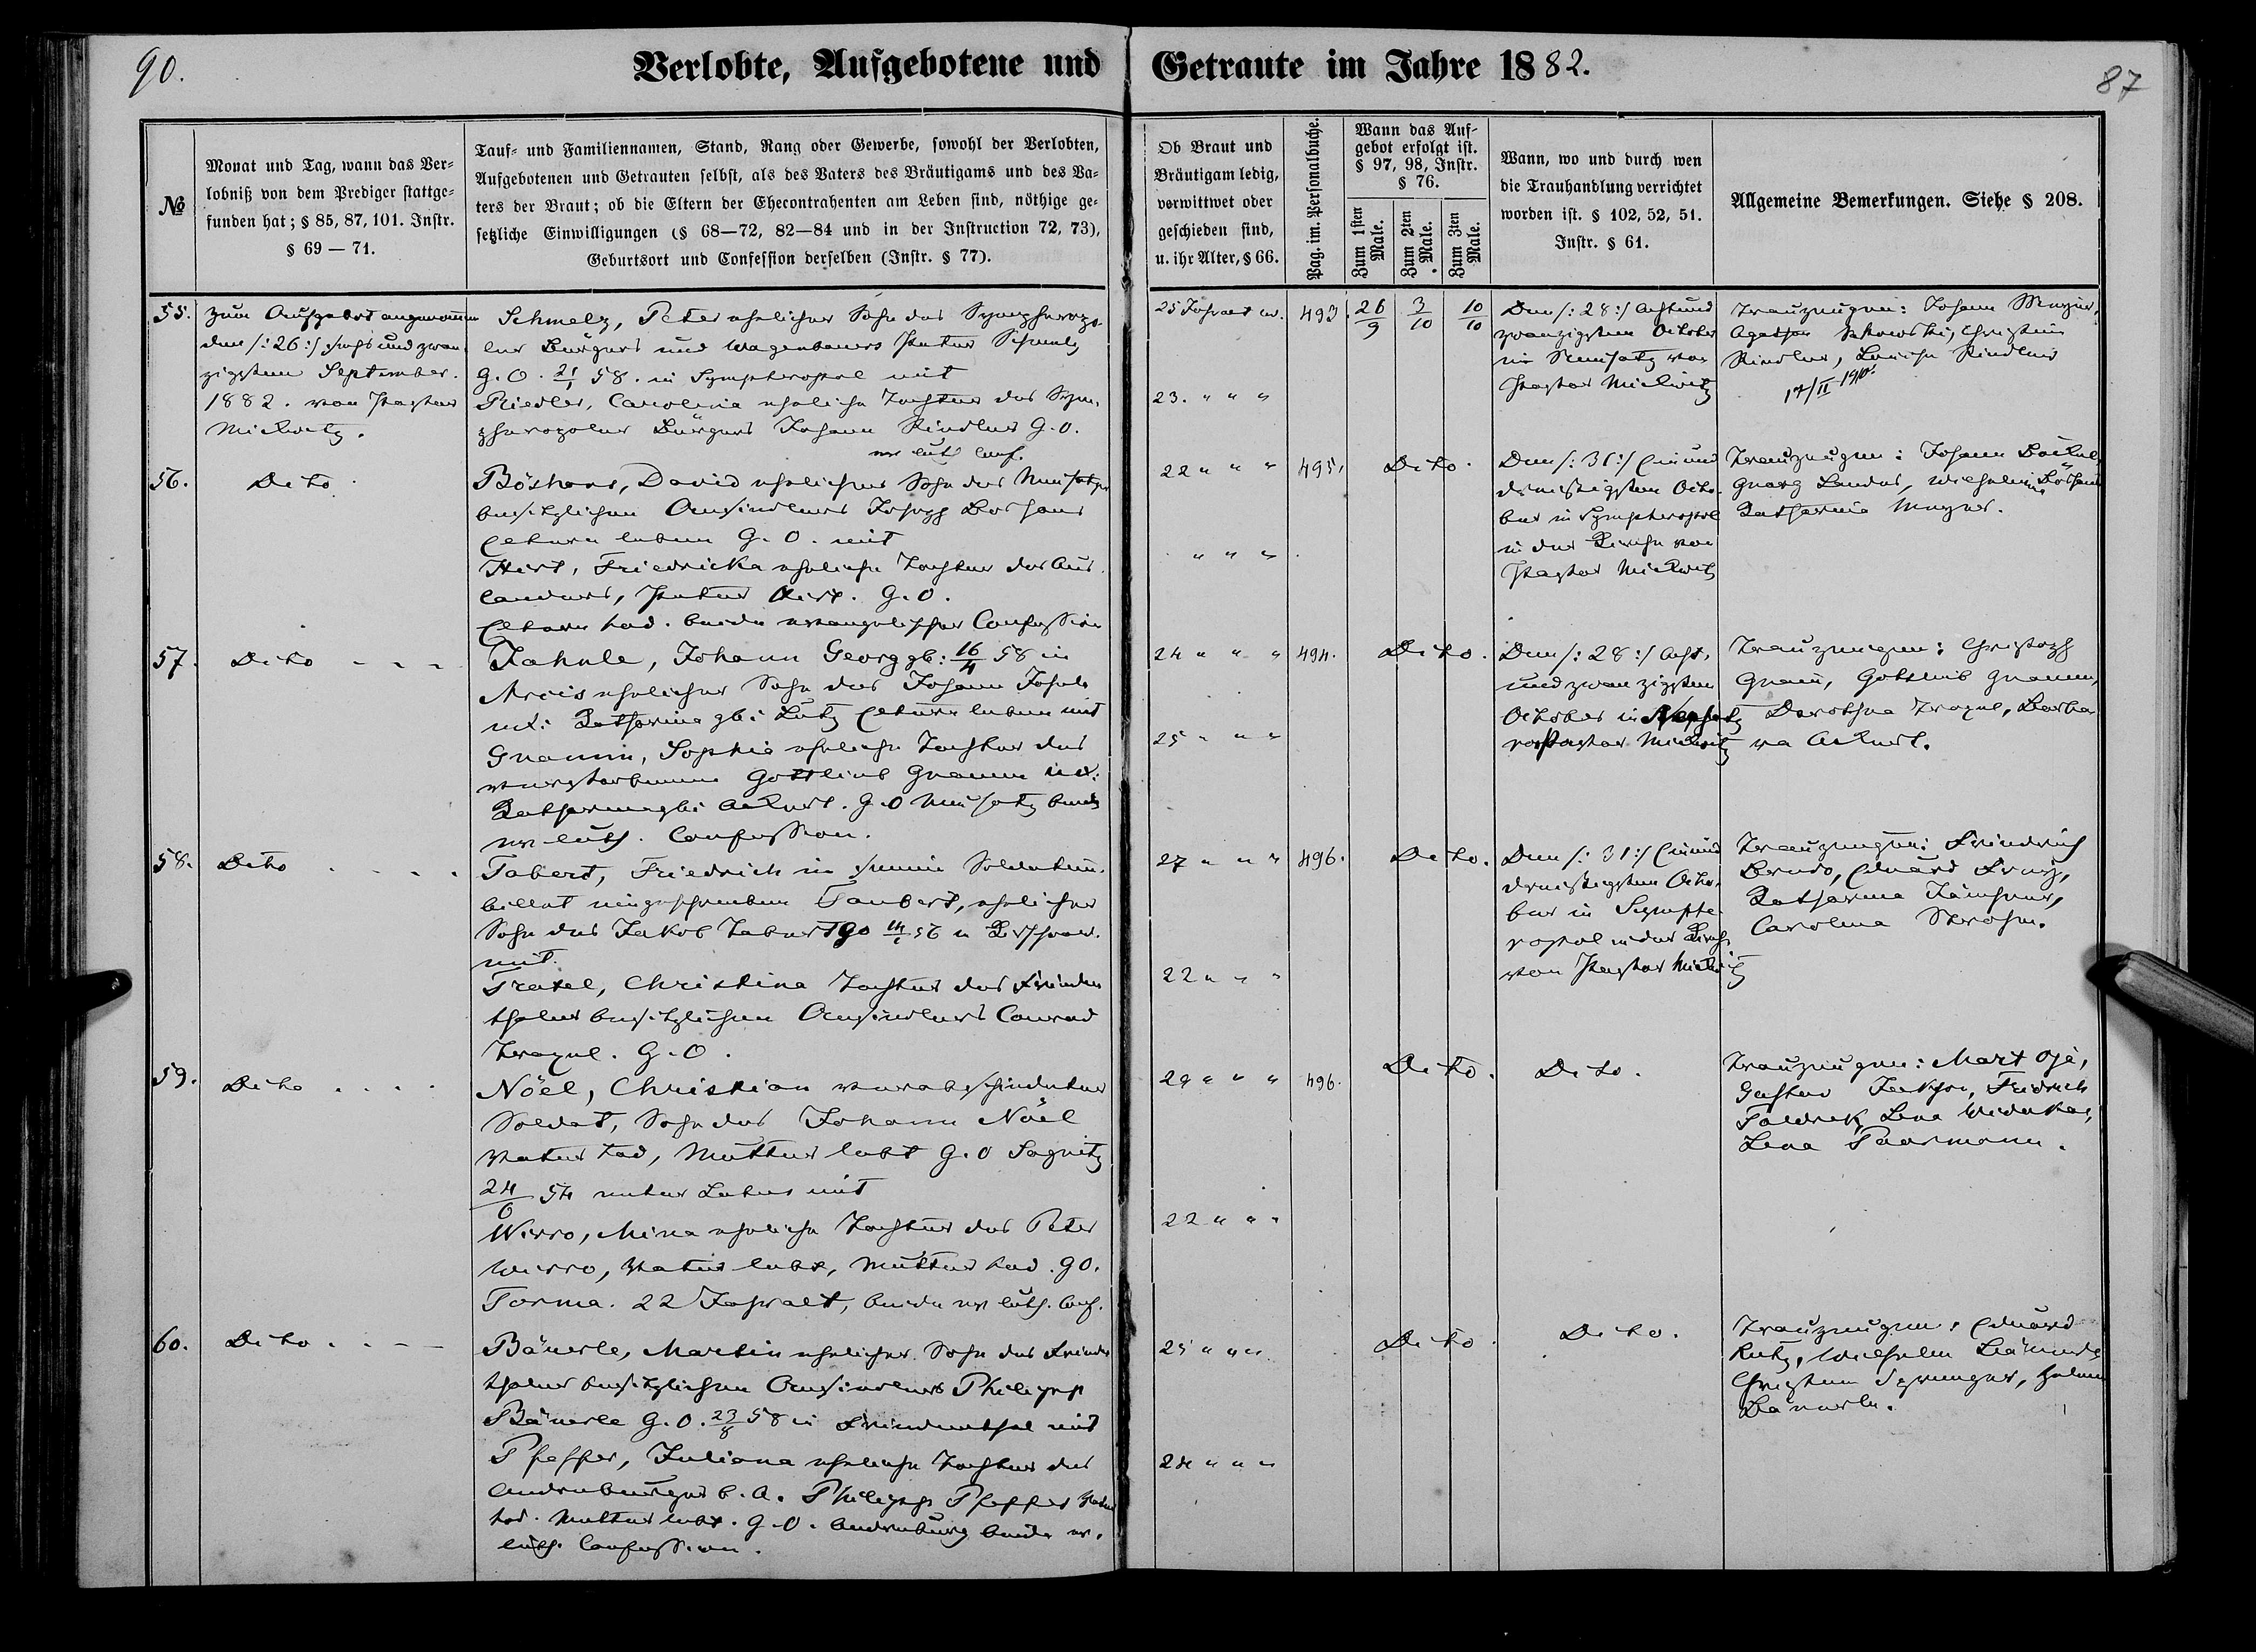 90.
Verlobte, Aufgebotene und Getraute im Jahre 1882.
87
№
Monat und Tag, wann das Ver-
lobniß von dem Prediger stattge-
funden hat; § 85, 87, 101. Instr.
§ 69 — 71.
Tauf- und Familiennamen, Stand, Rang oder Gewerbe, sowohl der Verlobten,
Aufgebotenen und Getrauten selbst, als des Vaters des Bräutigams und des Va-
ters der Braut; ob die Eltern der Ehecontrahenten am Leben sind, nöthige ge-
setzliche Einwilligungen (§ 68—72, 82—84 und in der Instruction 72, 73),
Geburtsort und Confession derselben (Instr. § 77).
Ob Braut und
Bräutigam ledig,
verwittwet oder
geschieden sind,
u. ihr Alter, § 66.
Pag. im. Personalbuche.
Wann das Auf-
gebot erfolgt ist.
§ 97, 98, Instr.
§ 76.
Zum 1sten
Male.
Zum 2ten
Male.
Zum 3ten
Male.
Wann, wo und durch wen
die Trauhandlung verrichtet
worden ist. § 102, 52, 51.
Instr. § 61.
Allgemeine Bemerkungen. Siehe § 208.
55.
zum Aufgebot angenommen
den /: 26 :/ sechs und zwan-
zigsten September.
1882. von Pastor
Mickwitz.
Schmelz, Peter ehelicher Sohn des Sympheropo-
ler Bürgers und Wagenbauers Peter Schmelz
G. O. 21/1 58. in Sympheropol mit
Riedler, Carolina eheliche Tochter des Sym-
pheropoler Bürgers Johann Riedler G. O.
ev luth Conf.
25 Jahr alt
23. " " "
493.
26/9
3/10
10/10
Den /: 28 :/ Acht und
zwanzigsten October
in Neusatz von
Pastor Mickwitz
Trauzeugen: Johann Meyer,
Agathon Christine
Riedler, Louise Riedler
17/II 1910.
56.
Dito.
Böshans, David ehelicher Sohn des Neusatzer
besitzlichen Ansiedlers Joseph Boshans
Eltern leben G. O. mit
Hirt, Friedricka eheliche Tochter des Aus-
länders, Peter Hirt. G. O.
Eltern tod. beide evangelischer Confession
22 " " "
" " "
495.
Dito.
Den /: 31 :/ Ein und
dreißigsten Octo-
ber in Sympheropol
in der Kirche von
Pastor Mickwitz
Trauzeugen: Johann
Georg Wilhelmine Böshans
Katharina Meyer.
57.
Dito - - -
Jahnle, Johann Georg gb: 16/4 58 in
ehelicher Sohn des Johann Jahnle
und: Katharina gb: Lutz Eltern leben mit
Gnamm, Sophie eheliche Tochter des
verstorbenen Gottlieb Gnamm und:
Katharina gb: Ackert. G. O Neusatz beide
ev luth. Confession.
24 " " "
25 " " "
494.
Dito.
Den /: 28 :/ Acht
und zwanzigsten
October in Neusatz
von Pastor Mickwitz
Trauzeugen: Christoph
Gnam, Gottlieb Gnamm,
Dorothea Barba-
ra Ackert.
58.
Dito . . . .
Tabert, Friedrich in seinem Soldaten-
billet eingeschrieben Taubert, ehelicher
Sohn des Jakob Tabert
mit
Traxel, Christina Tochter des Frieden-
thaler besitzlichen Ansiedlers Conrad
Traxel. G. O.
27 " " "
22 " " "
496.
Dito.
Den /: 31 :/ Ein und
dreißigsten Octo-
ber in Symphe-
ropol in der Kirche
von Pastor Mickwitz
Trauzeugen: Friedrich
Eduard
Katharina
Carolina Strohm.
59.
Dito . . . .
Nöel, Christian verabschiedeter
Soldat, Sohn des Johann Nöel
Vater tod, Mutter lebt G. O Sagnitz
24/6 54 mit
Wirro, Mina eheliche Tochter des Peter
Wirro, Vater lebt, Mutter tod. G O.
Torma. 22 Jahr alt, beide ev luth. Conf.
29 " " "
22 " " "
496.
Dito.
Dito.
Trauzeugen: Mart Oja,
Gustav Jackson, Fridrich
Lena
Lena Paarmann.
60.
Dito . . - -
Bäuerle, Martin ehelicher Sohn des Frieden-
thaler besitzlichen Ansiedlers Philipp
Bäuerle G. O. 23/8 58 in Friedenthal mit
Pfeffer, Juliana eheliche Tochter des
b. A. Philipp Pfeffer Vater
tod. Mutter lebt. G. O. beide ev.
luth. Confession.
25 " " "
24 " " "
Dito
Dito.
Trauzeugen: Eduard
Wilhelm Bäuerle
Christian Sprenger,
Bäuerle.